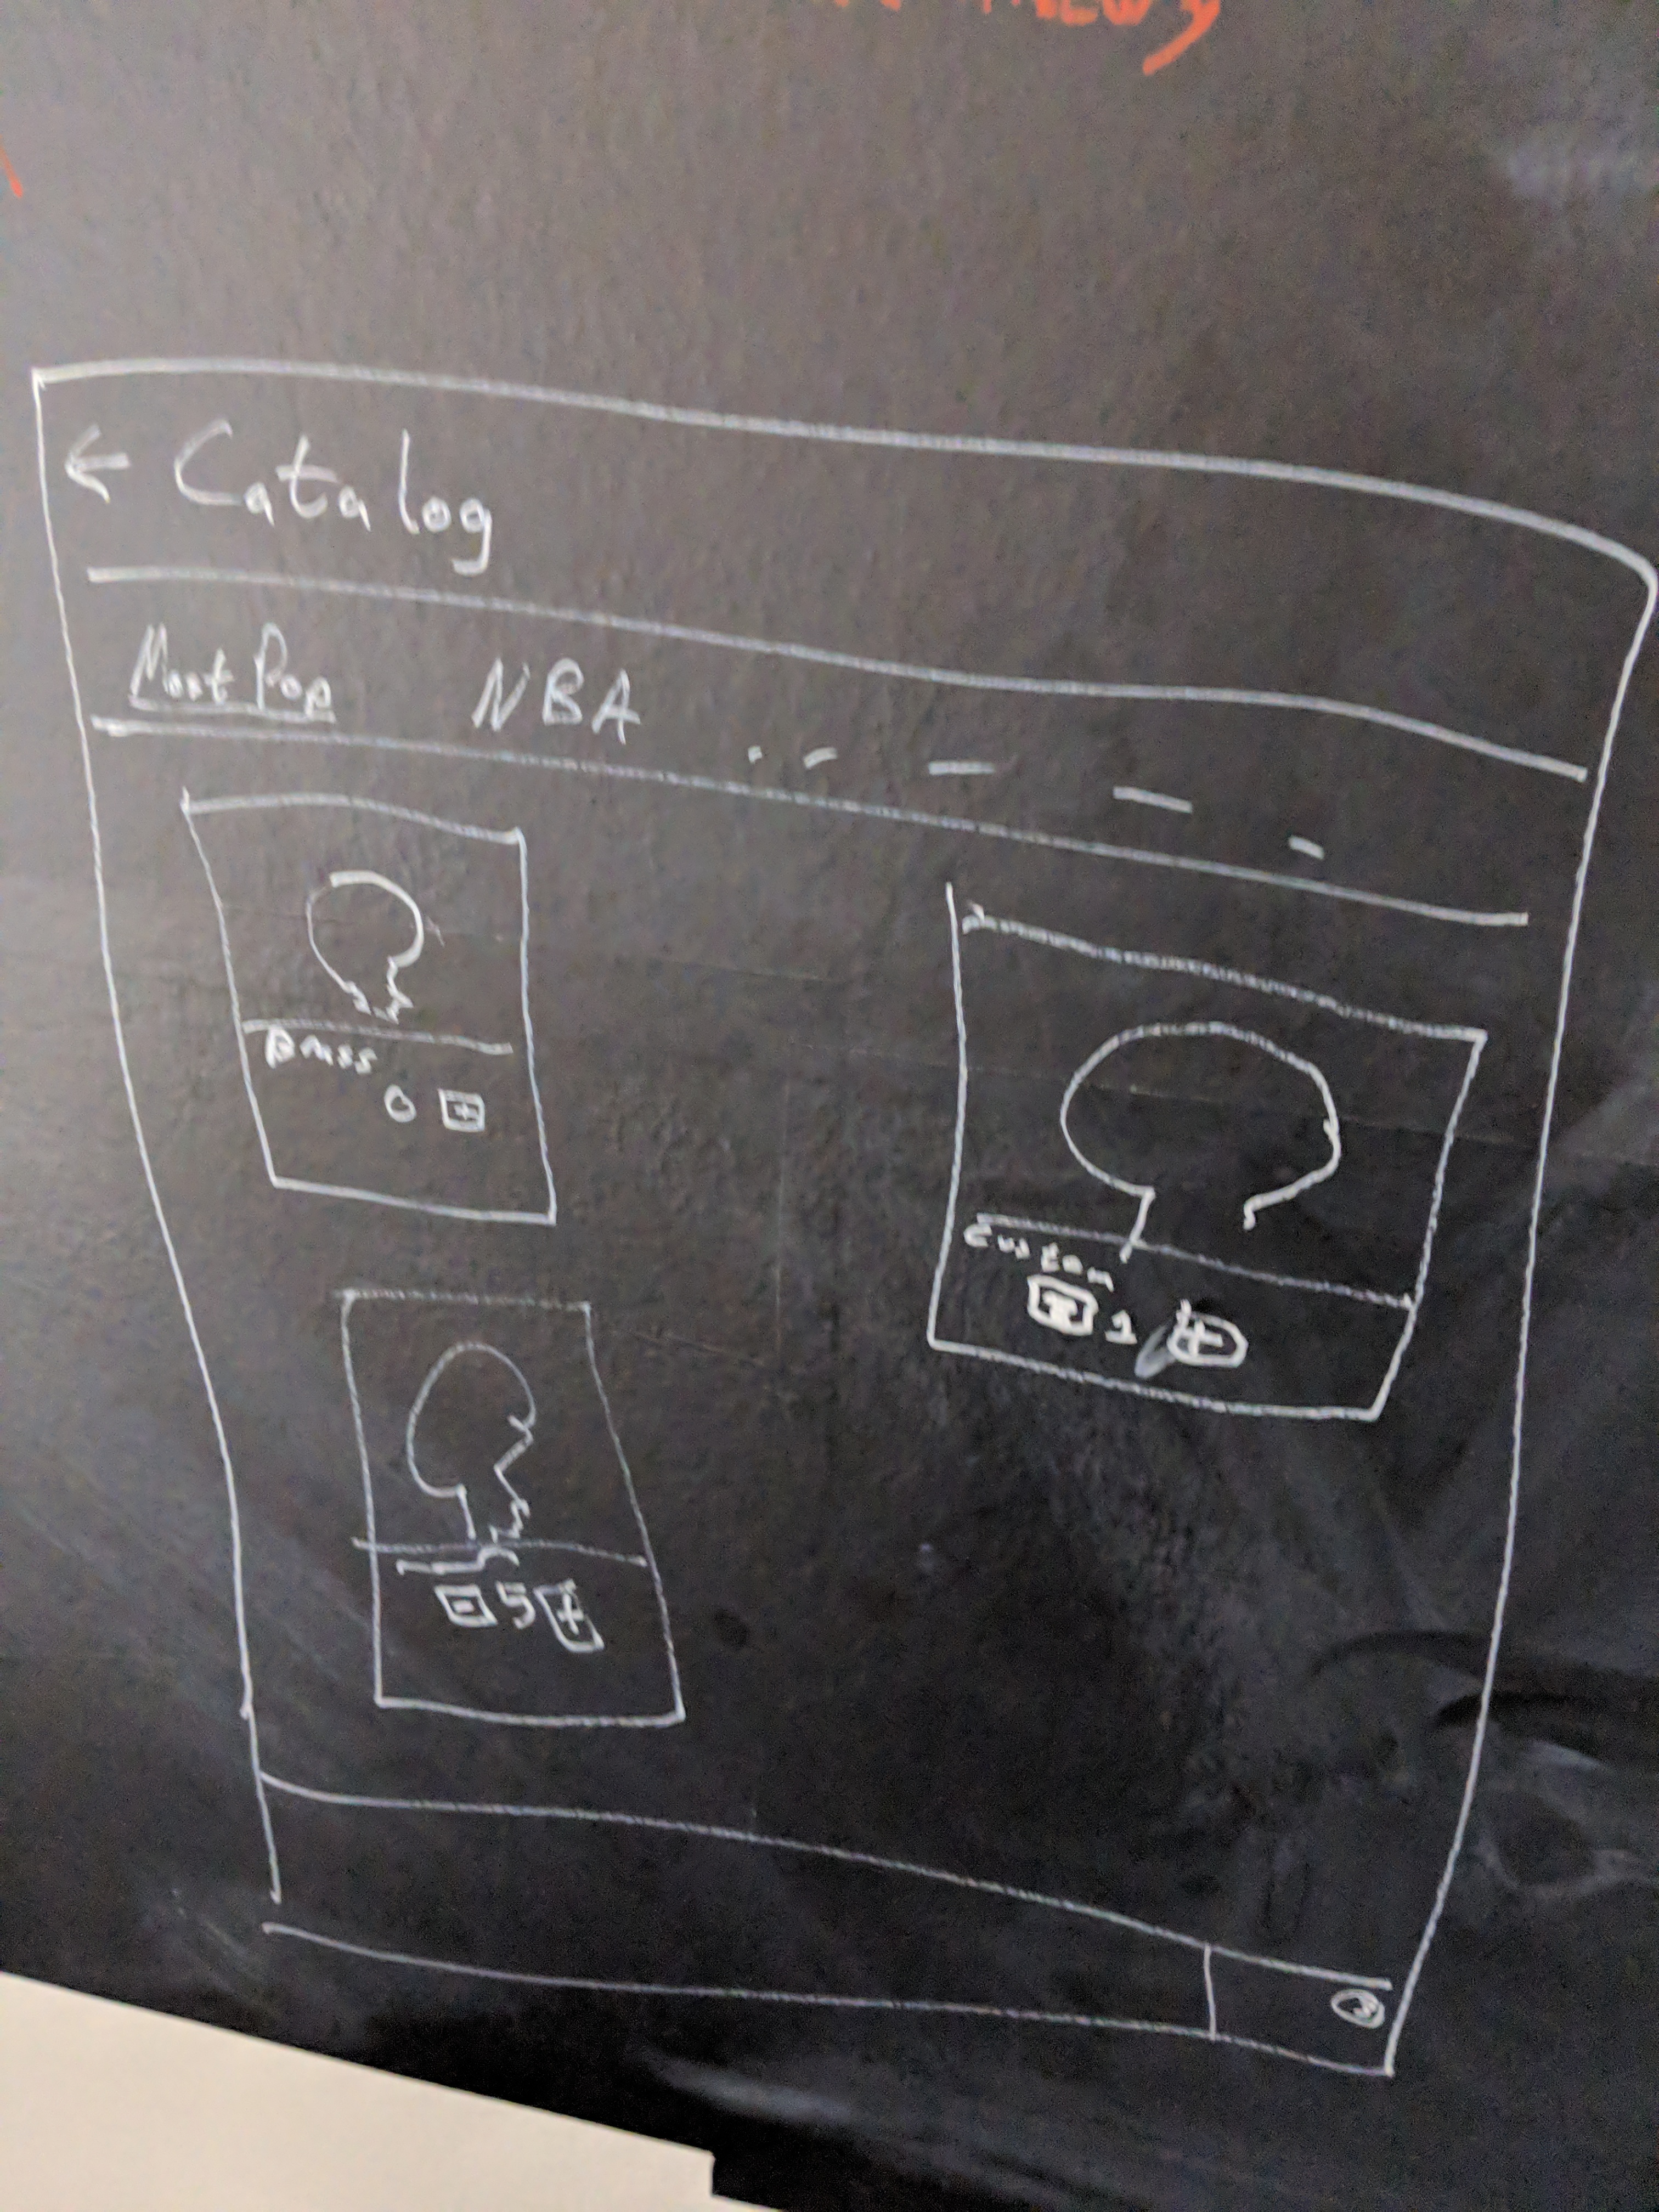 ← Catalog
Most Pop NBA
0 +
Custom
- 1 +
- 5 +